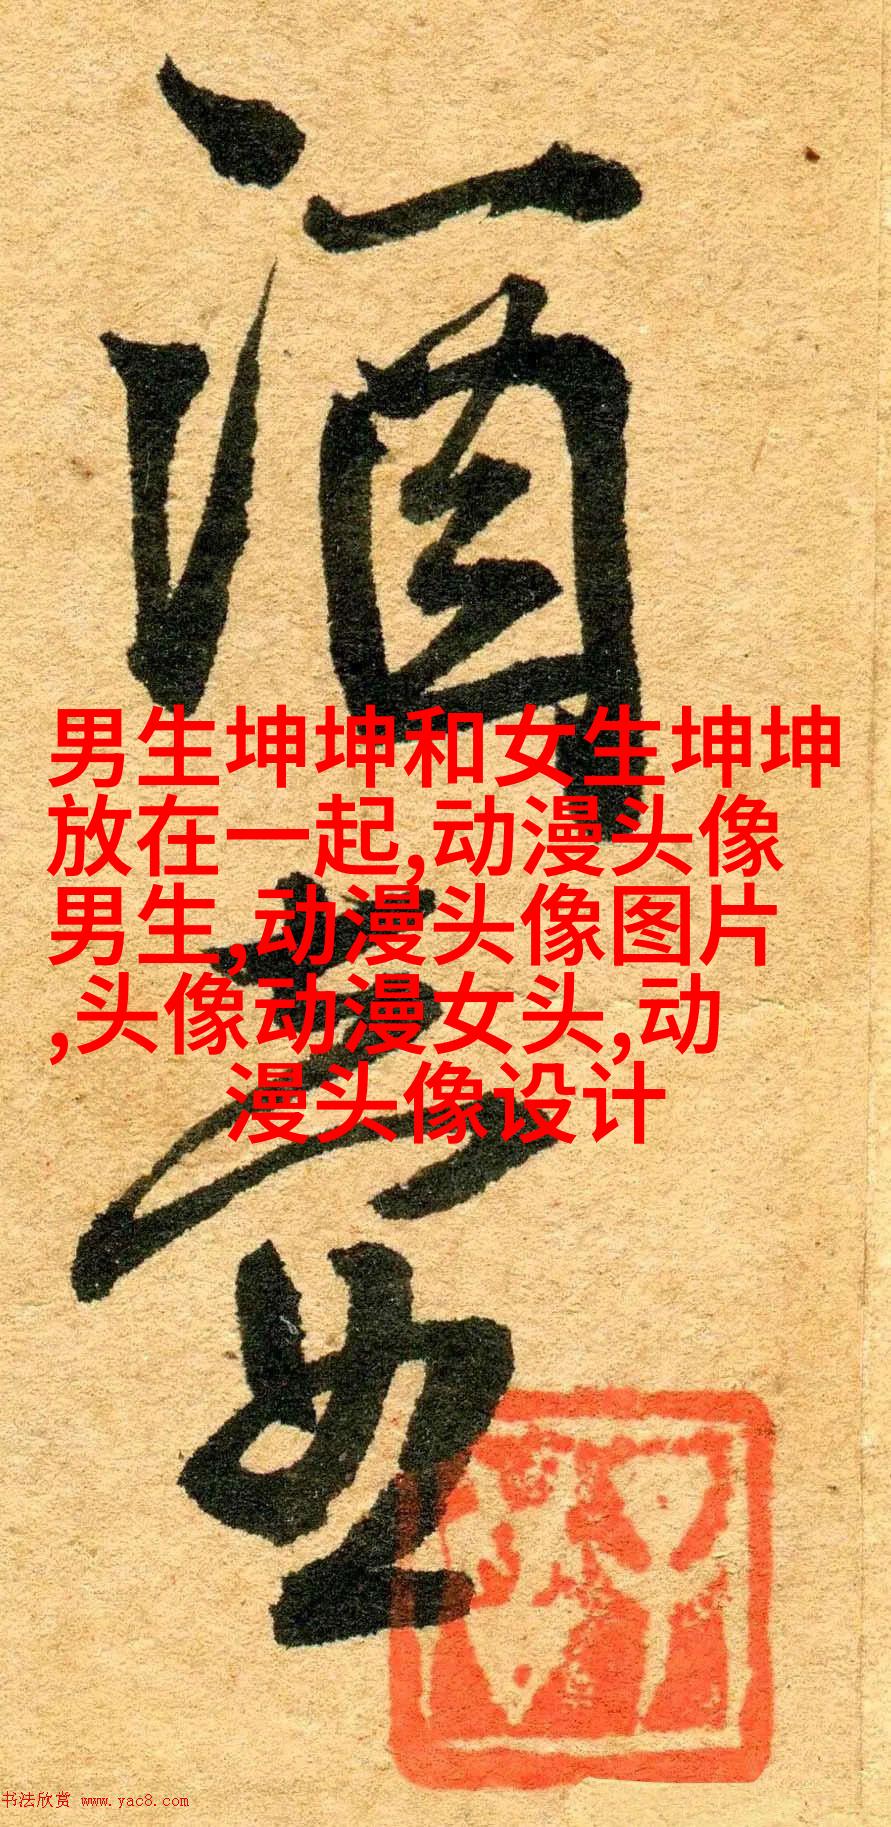 酒
男生坤坤和女生坤坤
放在一起,动漫头像
男生,动漫头像图片
,头像动漫女头,动
漫头像设计
书法欣赏 www.yac8.com